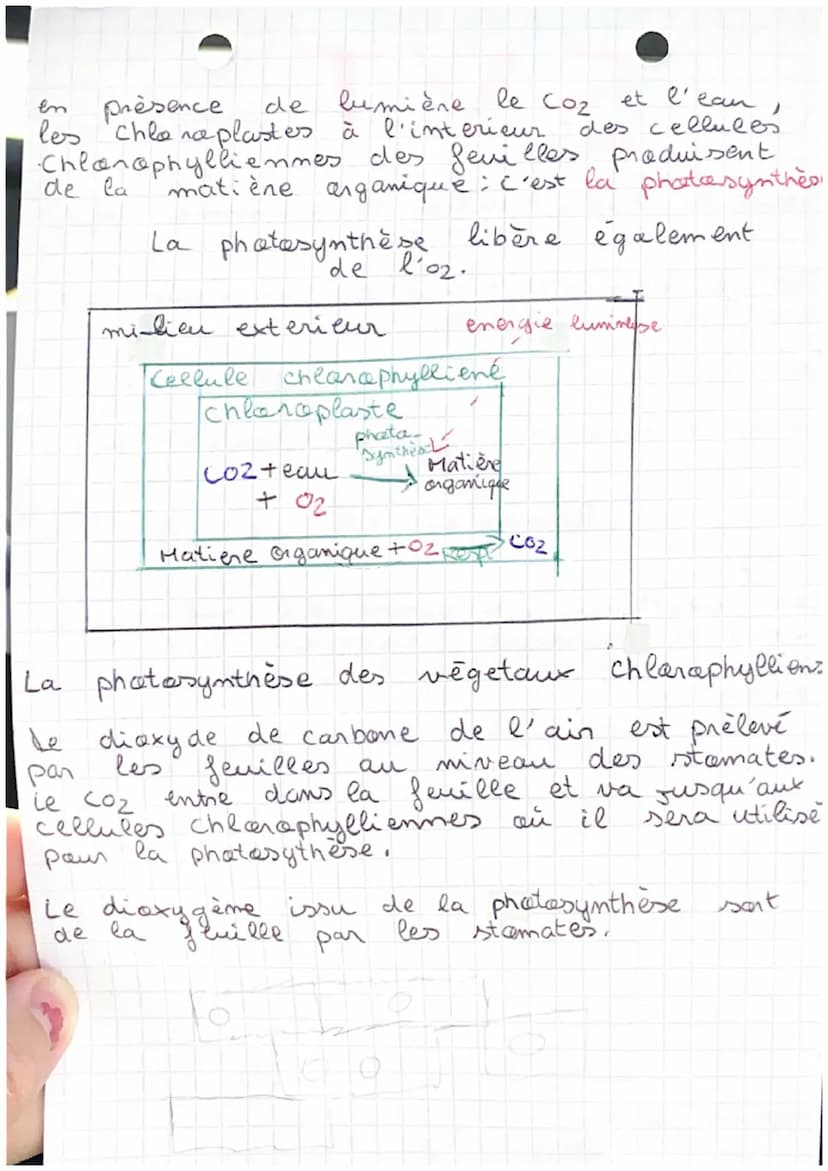 en présence de lumière le CO2 et l'eau,
les chloroplastes à l'interieur des cellules
chlorophylliennes des feuilles produisent
de la matière organique : c'est la photosynthès
La photosynthèse libère également
de l'O2.
milieu exterieur energie lumineuse
Cellule chlorophylliene
chloroplaste
photo-
synthèse
CO2 + eau → Matière
organique
+ O2
Matière Organique + O2 resp → CO2
La photosynthèse des végetaux chlorophylliens
Le dioxyde de carbone de l'air est prélevé
par les feuilles au niveau des stomates.
Le CO2 entre dans la feuille et va jusqu'aux
cellules chlorophylliennes où il sera utilisé
pour la photosythèse.
Le dioxygène issu de la photosynthèse sort
de la feuille par les stomates.